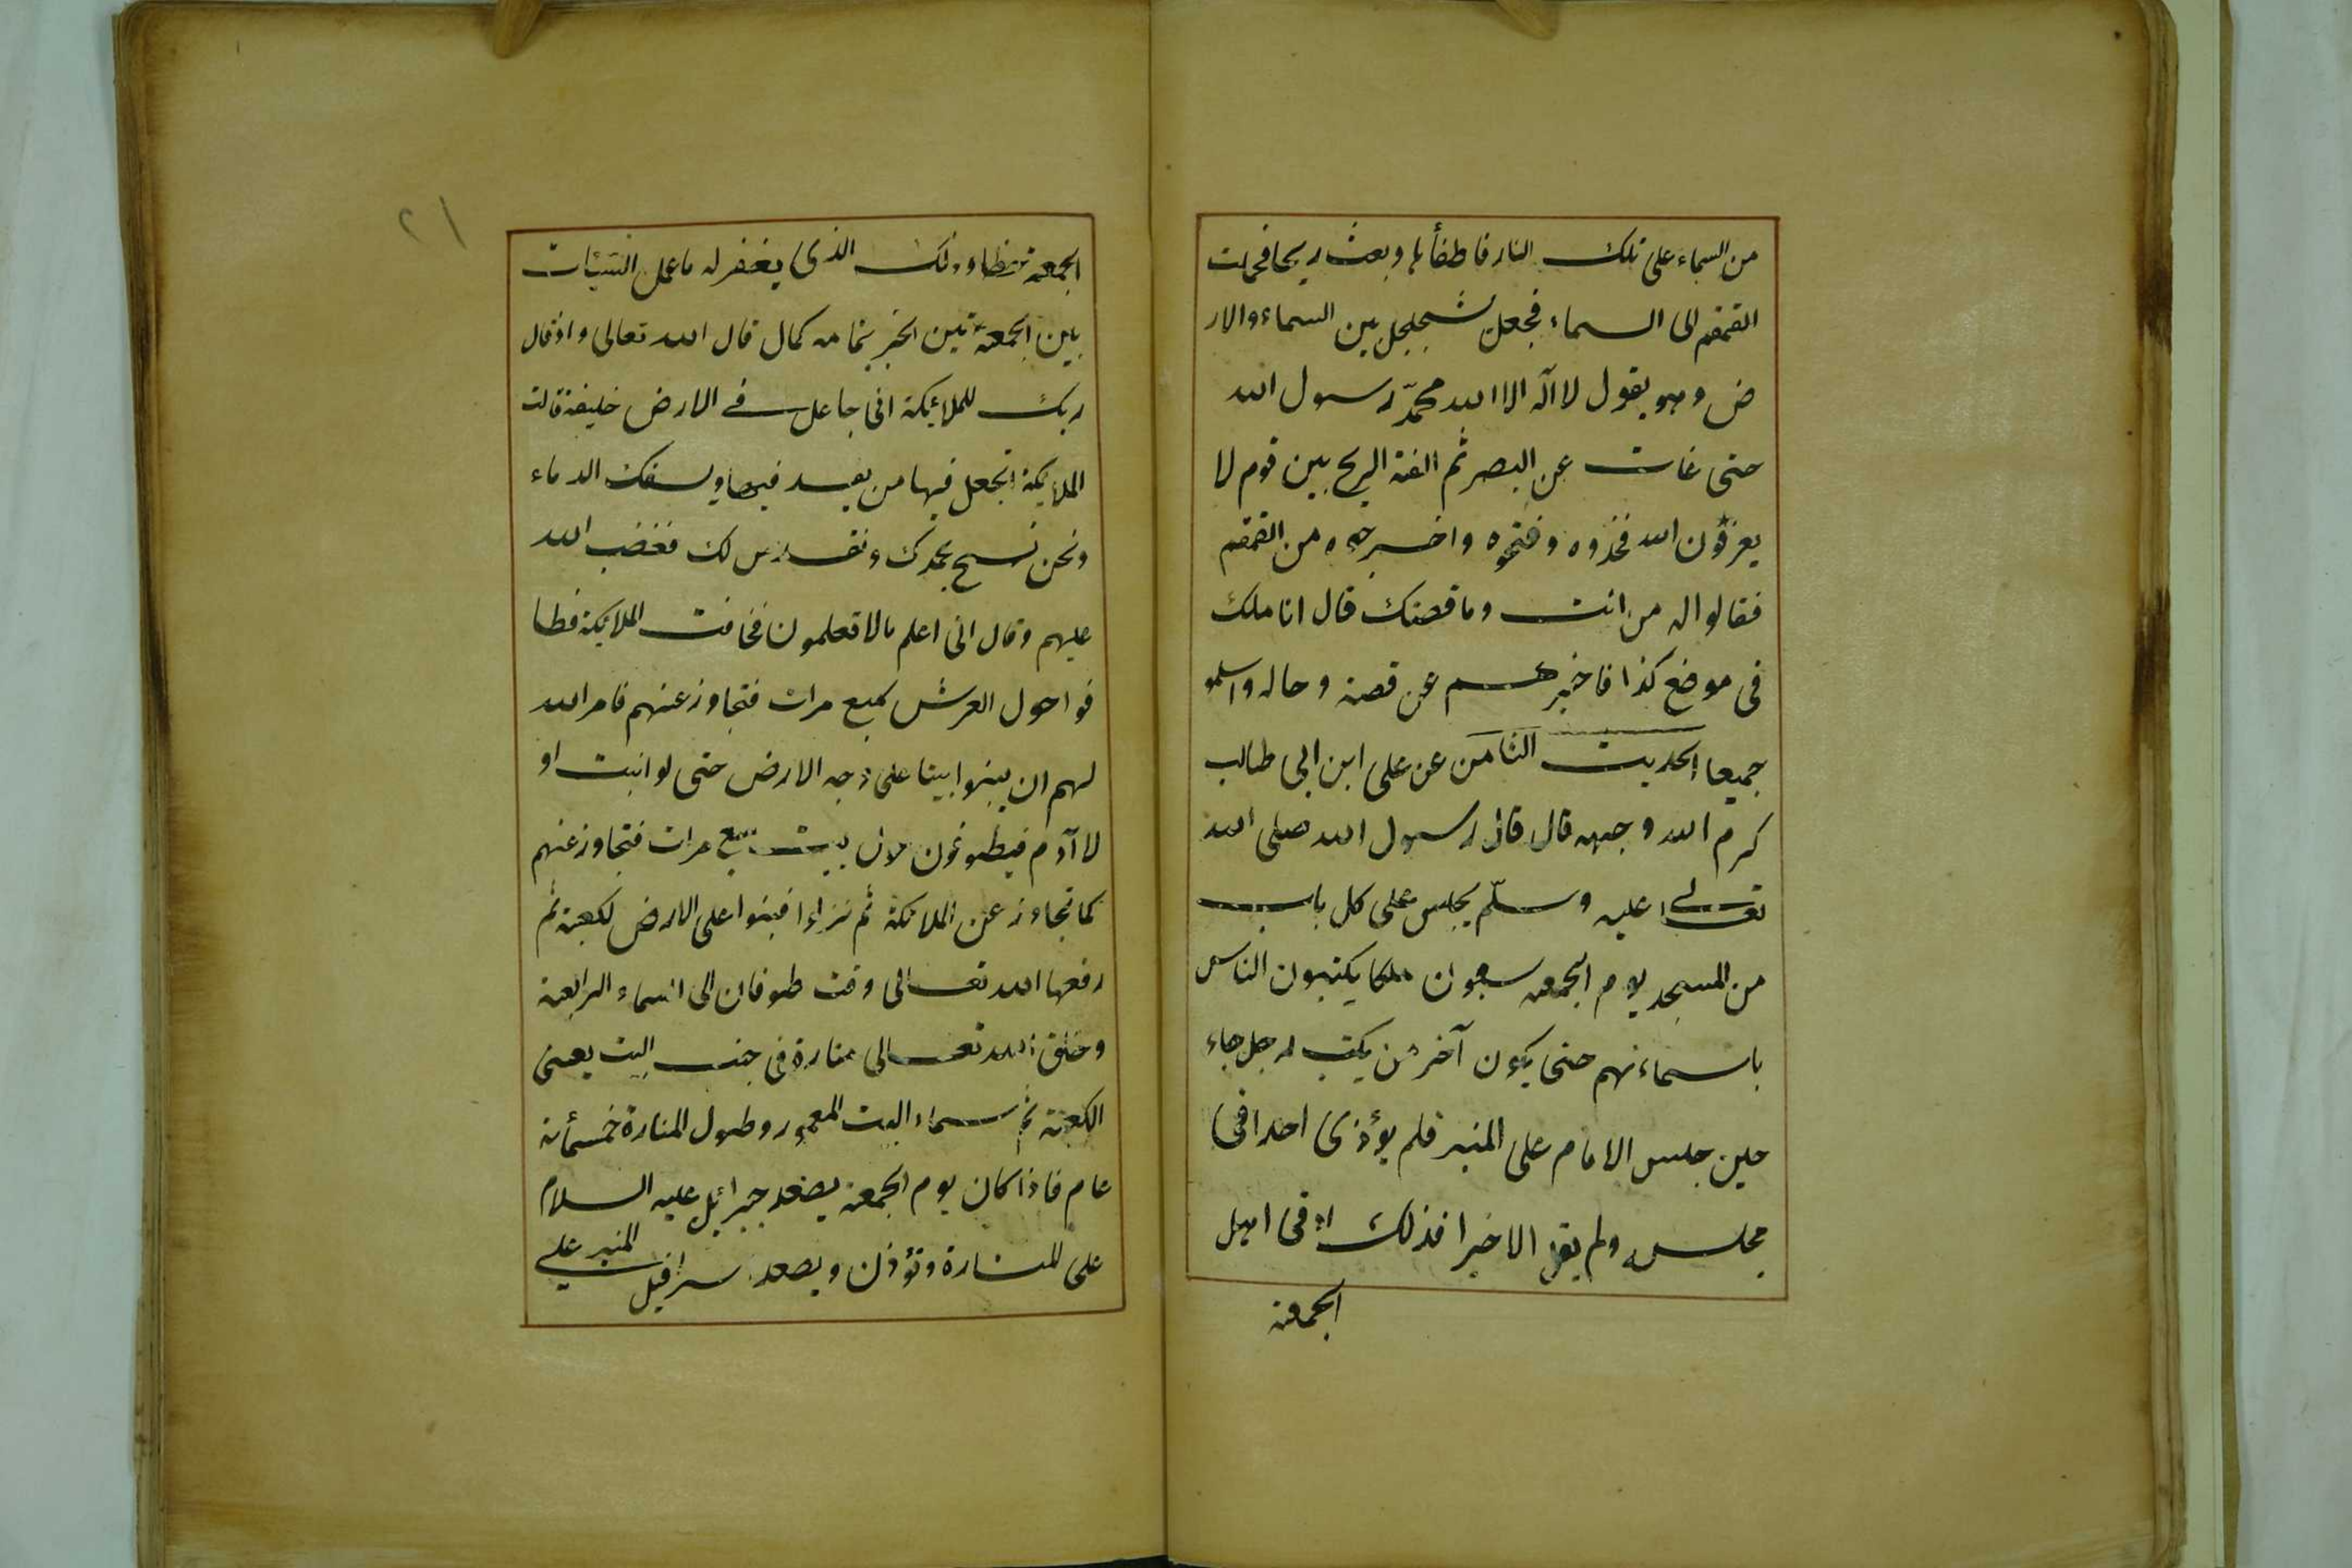 من السماء على تلك النار فاطفأها وبعث ريحا فحملت
القمقم الى السماء فجعل يتجلجل بين السماء والار
ض وهو يقول لا اله الا الله محمّد رسول الله
حتى غات عن البصر ثم الفته الريح بين قوم لا
يعرفون الله فخذوه وفتحوه واخرجوه من القمقم
فقالوا له من انت وما قصتك قال انا ملك
فى موضع كذا فاخبرهم عن قصته وحاله واسلمو
جميعا الحديث الثامن عن على ابن ابى طالب
كرم الله وجهه قال قال رسول الله صلى الله
تعالى عليه وسلّم يجلس على كل باب
من المسجد يوم الجمعه سبعون ملكا يكتبون الناس
باسماءهم حتى يكون آخر من يكتب رجل جاء
حين جلس الامام على المنبر فلم يؤذى احدا فى
مجلسه ولم يقل الا خيرا فذلك ادنى اهل
الجمعة
٢١
الجمعة وذلك الذى يغفر له ما عمل السيئات
بين الجمعتين الخبر بتمامه كمال قال الله تعالى واذ قال
ربك للملائكة انى جاعل فى الارض خليفة قالت
الملائكة اتجعل فيها من يفسد فيها ويسفك الدماء
ونحن نسبح بحمدك ونقدس لك فغضب الله
عليهم وقال انى اعلم مالا تعلمون فخافت الملائكة فطا
فوا حول العرش سبع مرات فتجاوز عنهم فامر الله
لهم ان يبنوا بيتا على وجه الارض حتى لو انبت او
لا آدم فيطوفون بيت سبع مرات فتجاوز عنهم
كما تجاوز عن الملائكة ثم نزلوا فبنوا على الارض لكعبة ثم
رفعها الله تعالى وقت طوفان الى السماء الرابعة
وخلق الله تعالى منارة فى جنب البيت يعنى
الكعبة ثم سماء البيت المعمور وطول المنارة خمسمأة
عام فاذا كان يوم الجمعة يصعد جبرائيل عليه السلام
على المنارة وتؤذن ويصعد سرافيل المنبر على